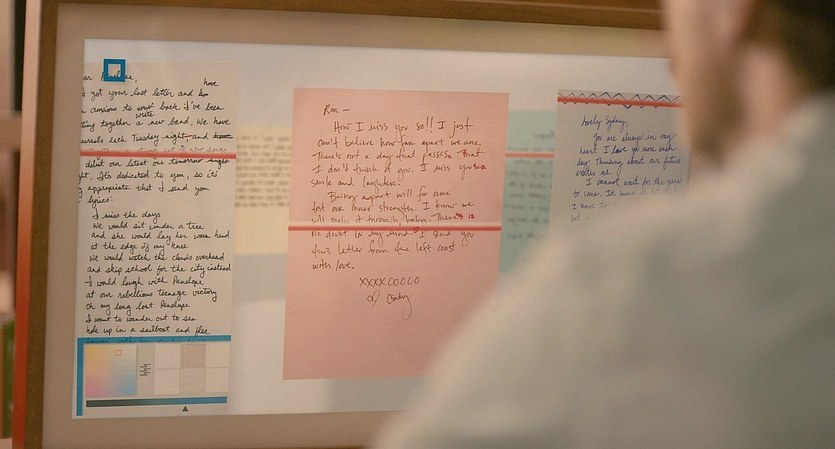 ar Penelope,
I got your last letter and have
anxious to write back. I've been
ting together a new band. We have
each Tuesday night and
debut our latest one
It's dedicated to you, so it's
appropriate that I send you
lyrics:
I miss the days
We would sit under a tree
and she would lay her head
at the edge of my knee
We would watch the clouds overhead
and skip school for the city instead
I would laugh with Penelope
at our rebellious teenage victory
Oh my long lost Penelope
I want to wander out to sea
hide up in a sailboat and flee
Ron —
How I miss you so!! I just
can't believe how far apart we are.
There's not a day that passes that
I don't think of you. I miss your
smile and laughter.
Being apart will for sure
test our inner strength. I know we
will make it through, babe. There is
no doubt in my mind. I send you
this letter from the left coast
with love.
XXXXOOOOO
Cindy
Lovely Sydney,
You are always in my
heart. I love you more each
day. Thinking about our future
excites me.
I cannot wait for the years
to come.
I have to